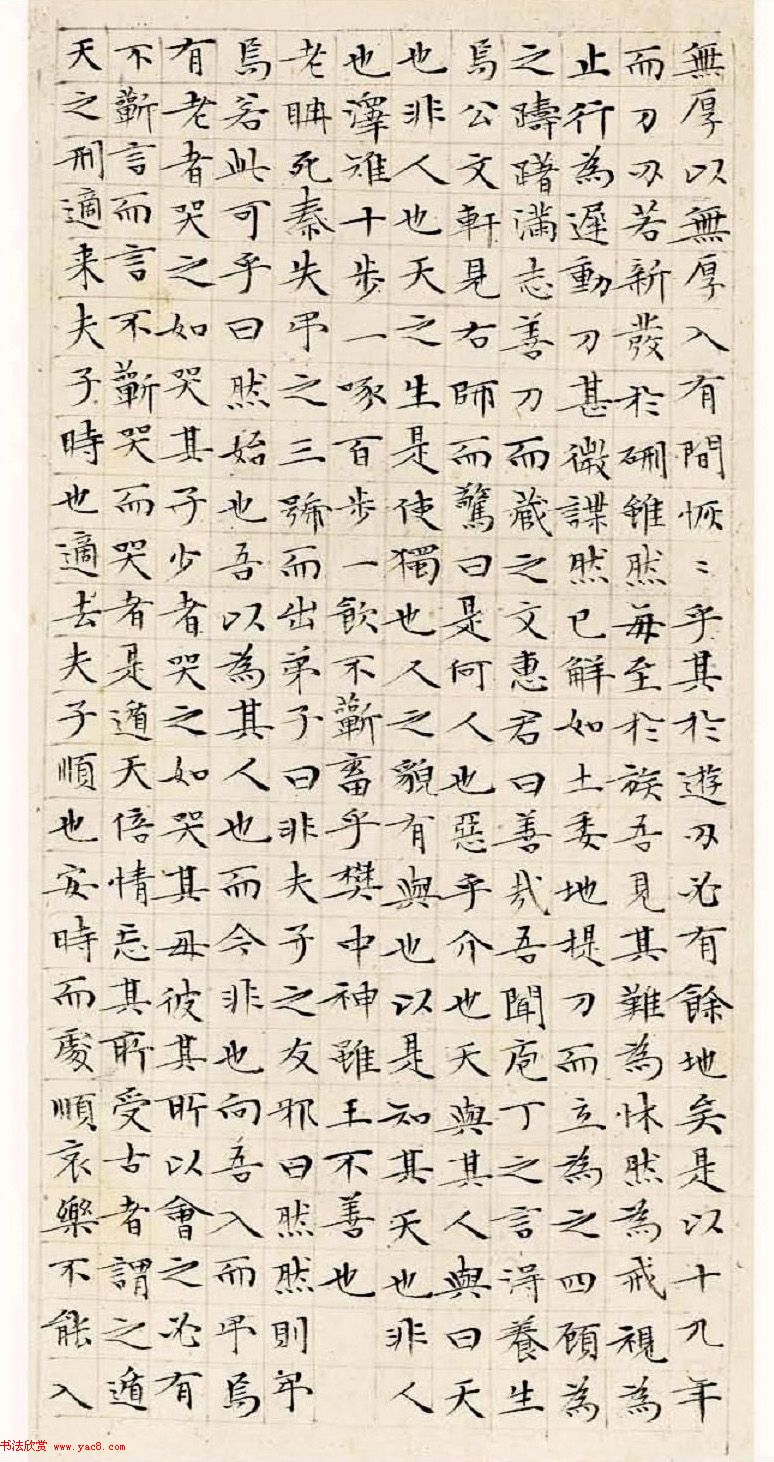 無厚以無厚入有間恢〻乎其於遊刃必有餘地矣是以十九年
而刀刃若新發於硎雖然每至於族吾見其難為怵然為戒視為
止行為遲動刀甚微謋然已解如土委地提刀而立為之四顧為
之躊躇滿志善刀而藏之文惠君曰善哉吾聞庖丁之言得養生
焉公文軒見右師而驚曰是何人也惡乎介也天與其人與曰天
也非人也天之生是使獨也人之貌有與也以是知其天也非人
也澤雉十步一啄百步一飲不蘄畜乎樊中神雖王不善也
老聃死秦失弔之三號而出弟子曰非夫子之友邪曰然然則弔
焉若此可乎曰然始也吾以為其人也而今非也向吾入而弔焉
有老者哭之如哭其子少者哭之如哭其母彼其所以會之必有
不蘄言而言不蘄哭而哭者是遁天倍情忘其所受古者謂之遁
天之刑適来夫子時也適去夫子順也安時而處順哀樂不能入
书法欣赏 www.yac8.com